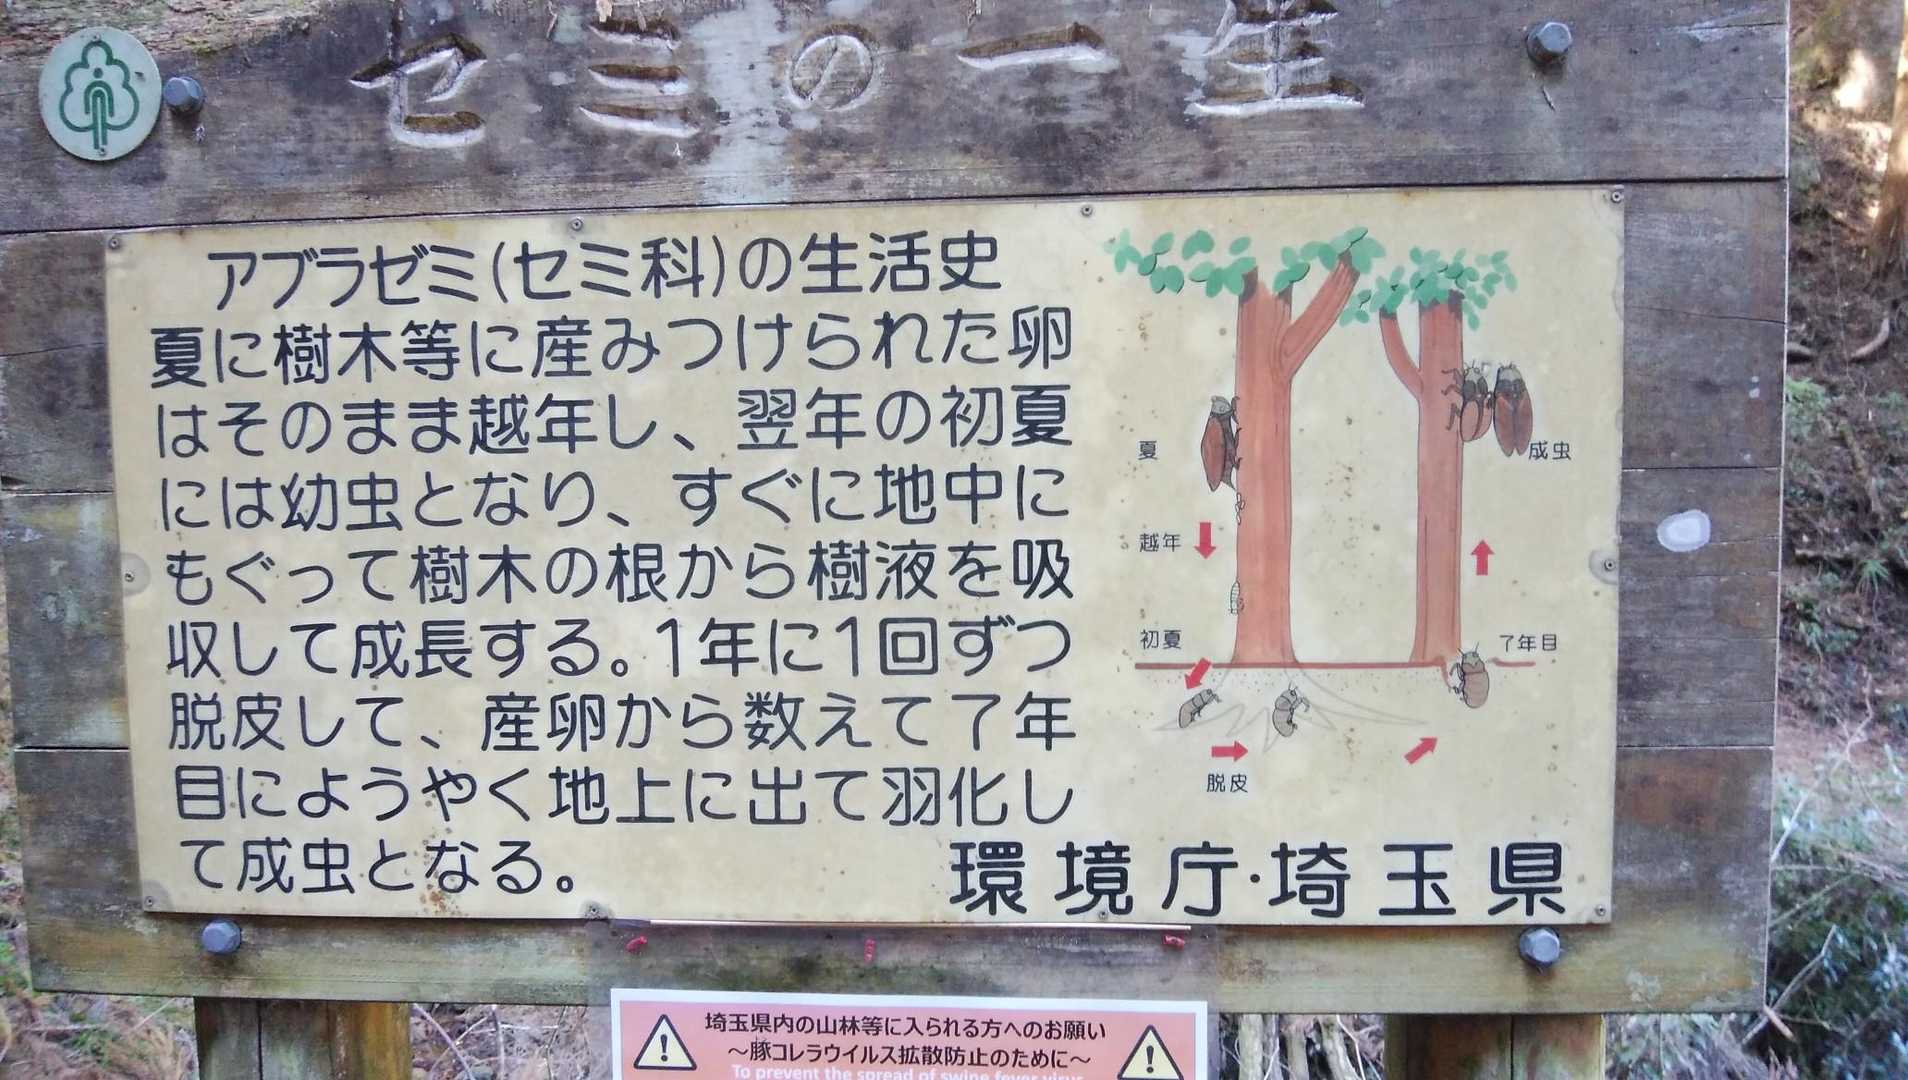 セミの一生
アブラゼミ(セミ科)の生活史
夏に樹木等に産みつけられた卵
はそのまま越年し、翌年の初夏
には幼虫となり、すぐに地中に
もぐって樹木の根から樹液を吸
収して成長する。1年に1回ずつ
脱皮して、産卵から数えて7年
目にようやく地上に出て羽化し
て成虫となる。
環境庁·埼玉県
夏
成虫
越年
初夏
7年目
脱皮
埼玉県内の山林等に入られる方へのお願い
～豚コレラウイルス拡散防止のために～
To prevent the spread of swine fever virus